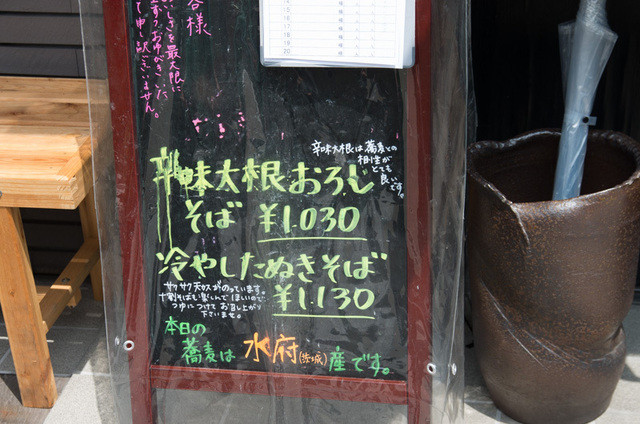 客様
しさを最大限に
申し訳ございません。
20
辛味大根は蕎麦との
相性が
とても
良いです。
辛味大根おろし
そば ¥1.030
冷やしたぬきそば
サクサク天カスがのっています。
十割そばも楽しんでほしいので
つゆにつけてお召し上がり
下さいませ。
¥1.130
本日の
蕎麦は 水府(茨城)産です。